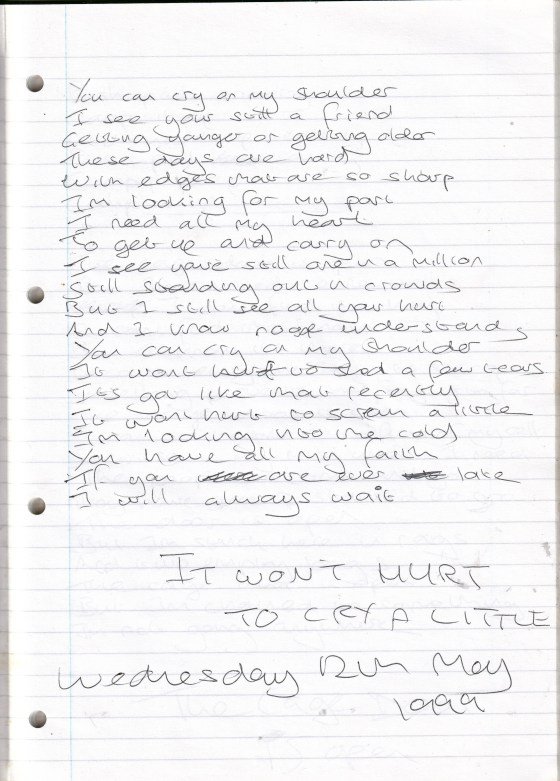 You can cry on my shoulder
I see your still a friend
Getting younger or getting older
These days are hard
With edges that are so sharp
Im looking for my part
I need all my heart
To get up and carry on
I see youre still one in a million
Still standing out in crowds
But I still see all your hurt
And I know no one understands
You can cry on my shoulder
It wont hurt to shed a few tears
Its got like that recently
It wont hurt to scream a little
Im looking into the cold
You have all my faith
If you are ever late
I will always wait
IT WON'T HURT
TO CRY A LITTLE
Wednesday 12th May
1999